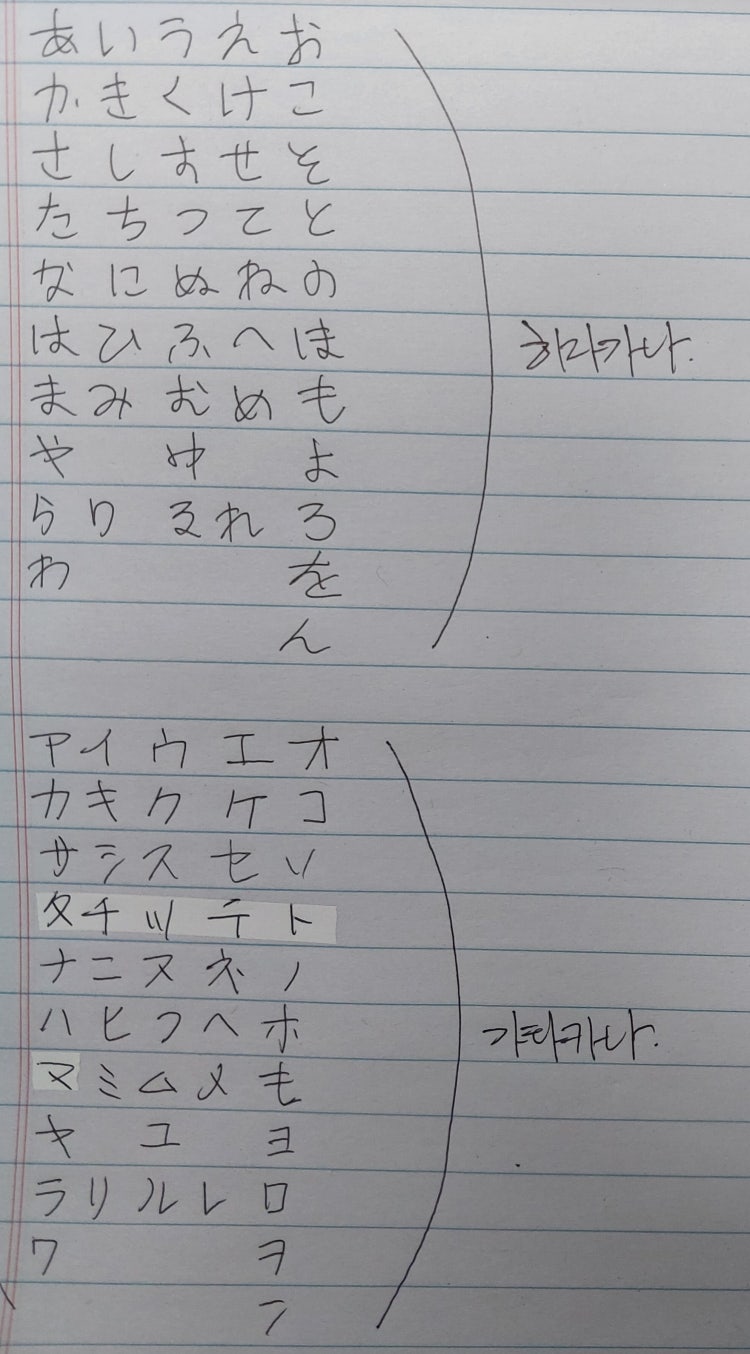 あいうえお
かきくけこ
さしすせそ
たちつてと
なにぬねの
はひふへほ
まみむめも
や ゆ よ
らりるれろ
わ を
ん
히라가나.
アイウエオ
カキクケコ
サシスセソ
タチツテト
ナニヌネノ
ハヒフヘホ
マミムメモ
ヤ ユ ヨ
ラリルレロ
ワ ヲ
ン
가타카나.